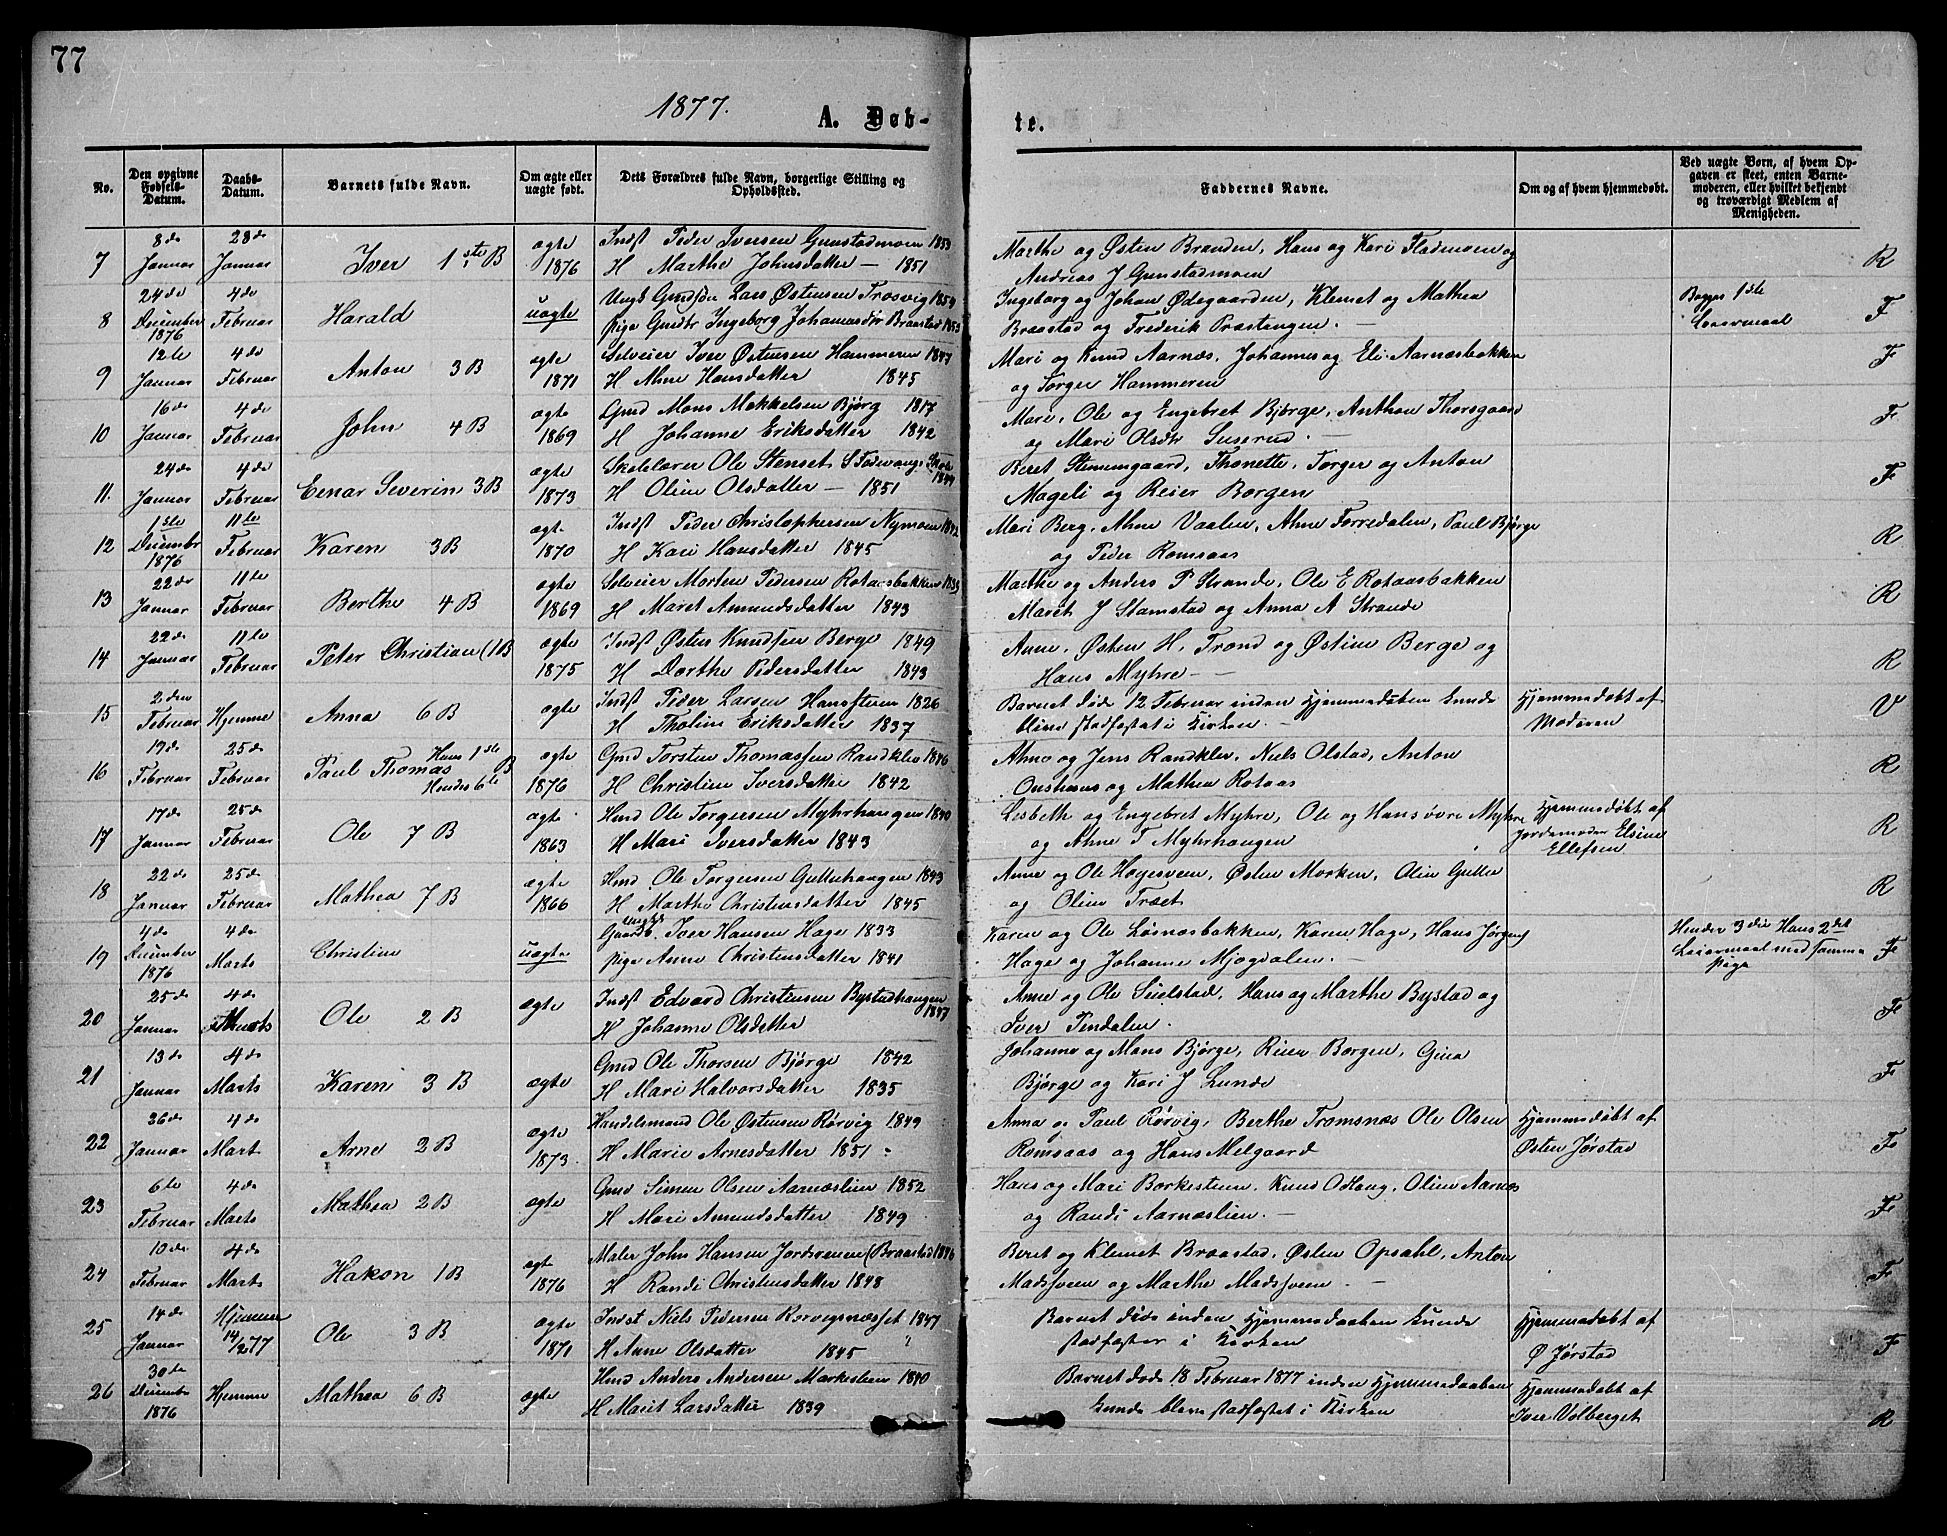 77
1877.
A. Døb-
te.
No.
Den opgivne Fødsels-Datum.
Daabs-Datum.
Barnets fulde Navn.
Om ægte eller uægte født.
Dets Forældres fulde Navn, borgerlige Stilling og Opholdssted.
Faddernes Navne.
Om og af hvem hjemmedøbt.
Ved uægte Børn, af hvem Opgaven er skeet, enten Barnemoderen, eller hvilket bekjendt og troværdigt Medlem af Menigheden.
8de 28de ægte Indst Peder Iversen Gunstadmoen 1853 Marthe og Østen Branden, Hans og Kari Fladmoen og
7 Januar Januar Iver 1ste B 1876 H Marthe Johnsdatter — 1851 Andreas J Gunstadmoen R
24de 4de Ungk Gmdsøn Lars Østensen Trosvig Ingeborg og Johan Ødegaarden, Klemet og Mathea Begges 1ste
8 December 1876 Februar Harald uægte Pige Gmdtr Ingeborg Johannesdtr Braastad 1853 Braastad og Frederik Præstengen. — Leiermaal F
12te 4de ægte Selveier Iver Østensen Hammeren 1847 Mari og Knud Aarnæs, Johannes og Eli Aarnæsbakken
9 Januar Februar Anton 3 B 1871 H Ahne Hansdatter 1845 og Torger Hammeren F
16de 4de ægte Gmd Mons Mekkelsen Bjørg 1817 Mari, Ole og Engebret Bjørge, Anthon Thorsgaard
10 Januar Februar John 4 B 1869 H Johanne Eriksdatter 1842 og Mari Olsdtr Suserud. — F
24de 4de ægte Skolelærer Ole Stenset S Fodvangs Skole 1849 Beret Stenumgaard, Thonette, Torger og Anton
11. Januar Februar Eenar Severin 3 B 1873 H Oline Olsdatter — 1851 Mageli og Reier Borgen F
1ste 11te ægte Indst Peder Christophersen Nymoen 1842 Mari Berg, Ahne Vaalen, Ahne Forredalen, Paul Bjørge
12 December 1876 Februar Karen 3 B 1870 H Kari Hansdatter 1845 og Peder Romsaas R
22de 11te ægte Selveier Morten Pedersen Rotaasbakken Marthe og Anders P Strande, Ole E Rotaasbakken
13 Januar Februar Berthe 4 B 1869 H Maret Amundsdatter 1843 Maret J Stamstad og Anna A Strande R
22de 11te ægte Indst Østen Knudsen Berge 1849 Anne, Østen H, Trond og Østine Berge og
14 Januar Februar Peter Christian (1 B 1875 H Dorthe Pedersdatter 1843 Hans Myhre — R
2den ægte Indst Peder Larsen Hansstuen 1826 Barnet døde 12 Februar inden Hjemmedaaben kunde Hjemmedøbt af
15 Februar Hjemme Anna 6 B H Tholine Eriksdatter 1837 blive stadfæstet i Kirken. — Moderen V
19de 25de Hans 1ste ægte Gmd Torsten Thomassen Randklev 1846 Ahne og Jens Randklev, Niels Olstad, Anton
16 Februar Februar Paul Thomas Hendes 6te B 1876 H Christine Iversdatter 1842 Onshuus og Mathea Rotaas R
17de 25de ægte Hmd Ole Torgersen Myhrhaugen 1840 Lisbeth og Engebret Myhre, Ole og Hans øvre Myhre Hjemmedøbt af
17 Januar Februar Ole 7 B 1863 H Mari Iversdatter 1843 og Ahne T Myhrhaugen Jordemoder Elsine Ellefsen R
22de 25de ægte Hmd Ole Torgersen Gullehaugen 1843 Anne og Ole Høgesveen, Østen Morken, Olin Gullen
18 Januar Februar Mathea 7 B 1866 H Marthe Christensdatter 1845 og Oline Træet R
4de 4de Ungk Gaardb. Iver Hansen Hage 1833 Karen og Ole Løsnæsbakken, Karen Hage, Hans Jørgen Hendes 3die Hans 2det
19 December 1876 Marts Christine uægte Pige Anne Christensdatter 1841 Hage og Johanne Mjogdalen. — Leiermaal med samme Pige F
25de 4de ægte Indst Edvard Christensen Bystadhaugen 1847 Anne og Ole Sielstad, Hans og Marthe Bystad og
20 Januar Marts Ole 2 B H Johanne Olsdatter Iver Tendalen. F
13de 4de Gmd Ole Thorsen Bjørge 1842 Johanne og Mons Bjørge, Reier Borgen, Gina
21 Januar Marts Karen 3 B ægte H Mari Halvorsdatter 1835 Bjørge og Kari J Lunde F
26de 4de ægte Handelsmand Ole Østensen Rørvig 1849 Anna og Paul Rørvig, Berthe Tromsnæs Ole Olsen Hjemmedøbt af
22 Januar Mart Arne 2 B 1873. H Marie Arnesdatter 1851 Romsaas og Hans Melgaard Østen Jørstad F
6te 4de Gmd Simen Olsen Aarnæslien 1852 Hans og Mari Borkesteen, Knud Odlaug, Oline Aarnæs
23 Februar Marts Mathea 2 B ægte H Mari Amundsdatter 1849 og Randi Aarnæslien. — F
10de 4de ægt Maler John Hansen Jordsveen (Braastad) 1846 Beret og Klemet Braastad, Østen Opsahl, Anton
24 Februar Marts Hakon 1 B 1876 H Randi Christensdatter 1848 Madsveen og Marthe Madsveen. — F
14de Hjemme ægte Indst Niels Pedersen Rørvigsnæsset 1847 Barnet døde inden Hjemmedaaben kunde Hjemmedøbt af
25 Januar 14/2 77 Ole 3 B 1871 H Anne Olsdatter 1845 stadfæstes i Kirken Ø Jørstad F
30te Hmd Anders Andersen Markesteen 1840 Barnet døde 18 Februar 1877 inden Hjemmedaaben Hjemmedøbt af
26 Decembr 1876 Hjemme Mathea 6 B ægte H Marit Larsdatter 1839 kunde blive stadfæstet i Kirken Iver Volberget R